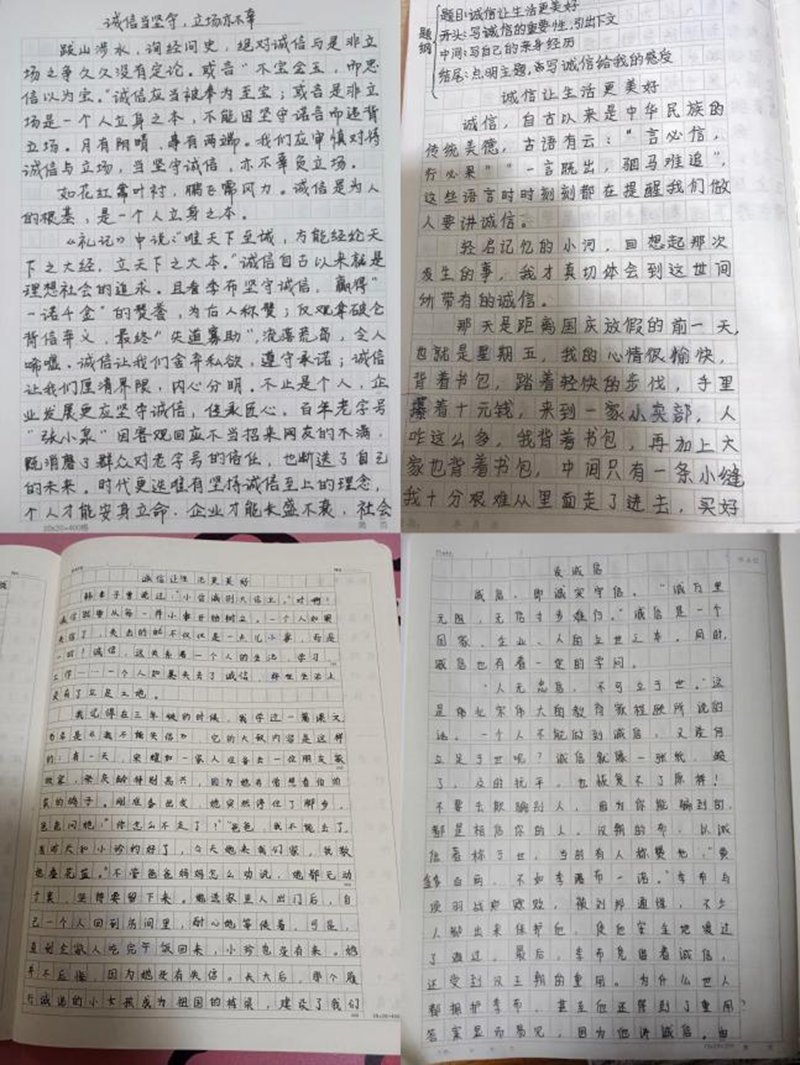 诚信当坚守，立场亦不辜
跋山涉水，询经问史，绝对诚信与是非立
场之争久久没有定论。或言"不宝金玉，而忠
信以为宝。"诚信应当被奉为至宝；或言是非立
场是一个人立身之本，不能因坚守诺言而违背
立场。月有阴晴，事有两端。我们应审慎对待
诚信与立场，当坚守诚信，亦不辜负立场。
如花红需叶衬，鹏飞需风力。诚信是为人
的根基，是一个人立身之本。
《礼记》中说："唯天下至诚，方能经纶天
下之大经，立天下之大本。"诚信自古以来就是
理想社会的追求。且看季布坚守诚信，赢得"
一诺千金"的赞誉，为后人称赞；反观拿破仑
背信弃义，最终"失道寡助"，流落荒岛，令人
唏嘘。诚信让我们舍弃私欲，遵守承诺；诚信
让我们厘清界限，内心分明。不止是个人，企
业发展更应坚守诚信，传承匠心。百年老字号
"张小泉"因客观回应不当招来网友的不满，
既消磨了群众对老字号的信任，也断送了自己
的未来。时代更迭唯有坚持诚信至上的理念，
个人才能安身立命，企业才能长盛不衰，社会
20×20=400格
题纲
题目：诚信让生活更美好
开头：写诚信的重要性，引出下文
中间：写自己的亲身经历
结尾：点明主题，再写诚信给我的感受
诚信让生活更美好
诚信，自古以来是中华民族的
传统美德，古语有云："言必信，
行必果""一言既出，驷马难追"，
这些语言时时刻刻都在提醒我们做
人要讲诚信。
轻名记忆的小河，回想起那次
发生的事，我才真切体会到这世间
所带有的诚信。
那天是距离国庆放假的前一天，
也就是星期五，我的心情很愉快，
背着书包，踏着轻快的步伐，手里
攥着十元钱，来到一家小卖部，人
咋这么多，我背着书包，再加上大
家也背着书包，中间只有一条小缝
我十分艰难从里面走了进去，买好
诚信让生活更美好
韩非子曾说过："小信诚则大信立。"对啊！
诚信就要从每一件小事开始树立。一个人如果
失信了，失去的不仅仅是一点儿小事，而是
一切！诚信，这关系着一个人的生活，学习，
工作……一个人如果失去了诚信，将在生活上
没有了立足之地。
我记得在三年级的时候，我学过一篇课文
为名是《我不能失信》，它的大致内容是这样
的：有一天，宋耀如一家人准备去一位朋友家
做客，宋庆龄特别高兴，因为她非常想看伯伯
家的鸽子。刚准备出发，她突然停住了脚步，
爸爸问她："你怎么不走了！""爸爸，我不能去了，
我昨天和小珍约好了，今天她来我们家，我教
她叠花篮。"不管爸爸妈妈怎么劝说，她都无动
于衷，坚持要留下来。她送家里人出门后，自
己一个人回到房间里，耐心地等候着，可是，
直到全家人吃完午饭回来，小珍也没有来。她
并不后悔，因为她没有失信。长大后，那个履
行诚诺的小女孩成为祖国的栋梁，建设了我们
论诚信
诚信，即诚实守信。"诚行里
无阻，无信寸步难行。"诚信是一个
国家、企业、人的立世之本。同时，
诚信也有着一定的学问。
"人无忠信，不可立于世。"这
是伟大宋伟大的教育家程颐所说的
话。一个人不能做到诚信，又怎何
立足于世呢？诚信就像一张纸，皱
了，及时抚平，也恢复不了原样！
不要去欺骗别人，因为你能骗到的，
都是相信你的人。汉朝的布，以诚
信著称于世，当时有人称赞他："黄
金百两，不如李布一诺。"季布与
项羽战败败，被刘邦通缉，不少
人都出来保护他，使他安全地渡过
了难过。最后，季布凭借着诚信，
还受到汉王朝的重用。为什么世人
都拥护季布，甚至他还得到了重用？
答案显而易见，因为他讲诚信。由